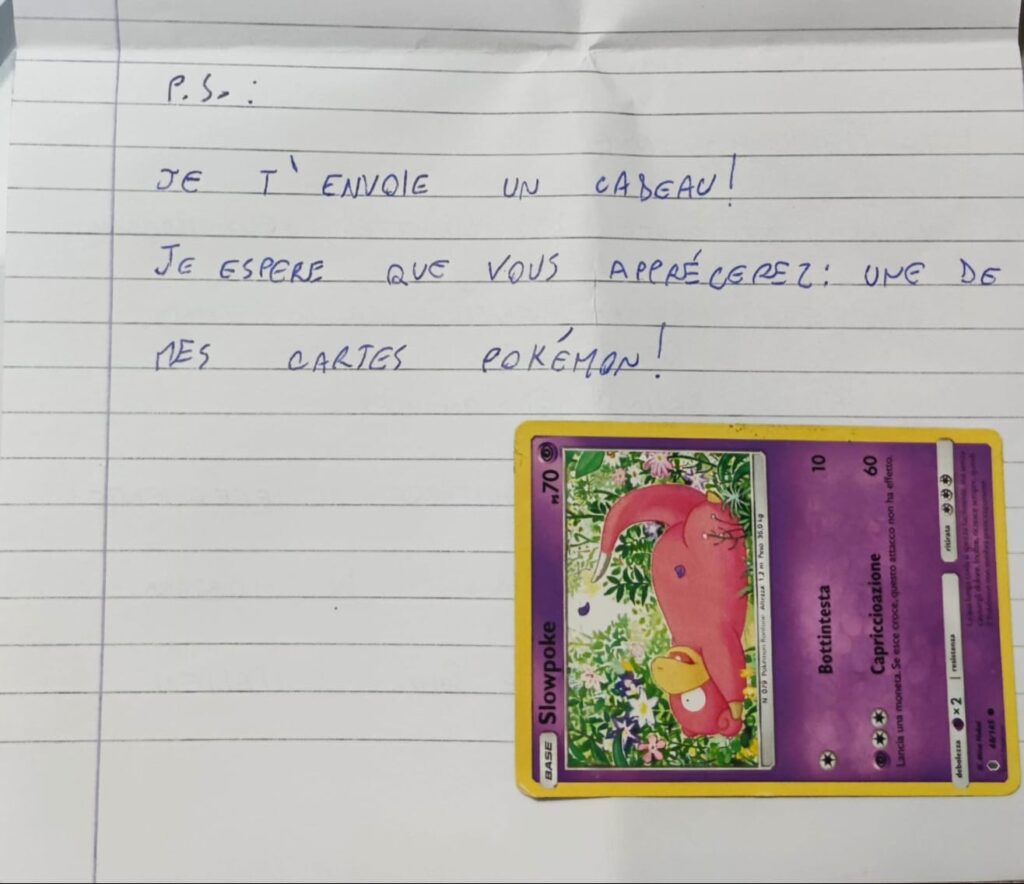 P.S.:
JE T'ENVOIE UN CADEAU!
JE ESPERE QUE VOUS APPRÉCEREZ: UNE DE
MES CARTES POKÉMON!
BASE Slowpoke PS70
N. 079 Pokémon Ronfone Altezza 1,2 m Peso 36,0 kg
Bottintesta 10
Capriccioazione 60
Lancia una moneta. Se esce croce, questo attacco non ha effetto.
debolezza ×2 resistenza ritirata